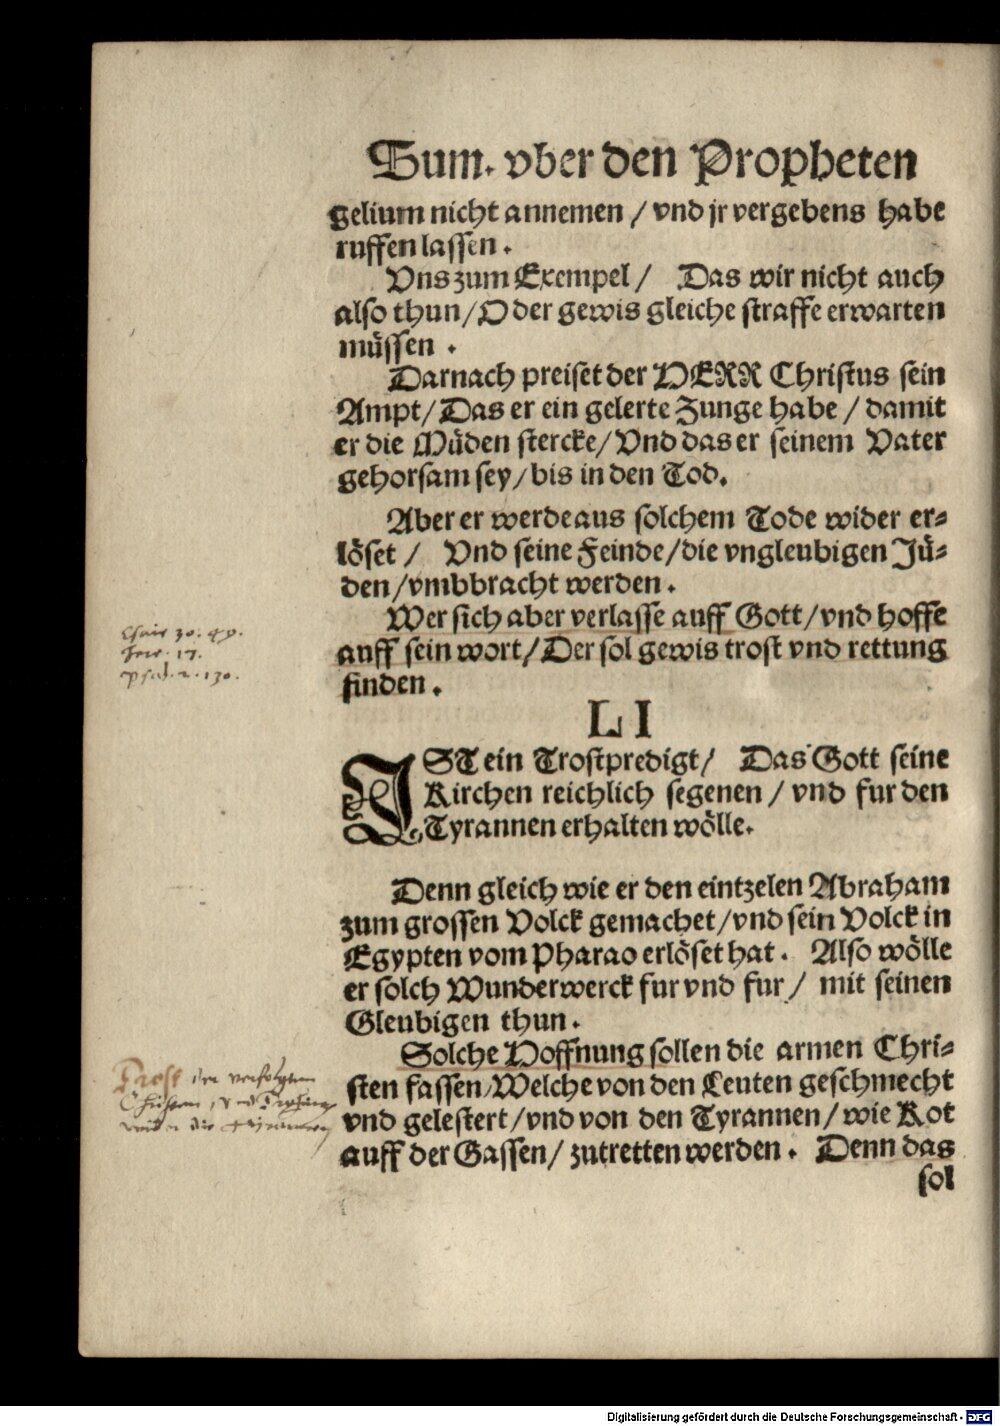 Sum. vber den Propheten
gelium nicht annemen / vnd jr vergebens habe
ruffen lassen.
Vns zum Exempel / Das wir nicht auch
also thun / Oder gewis gleiche straffe erwarten
müssen.
Darnach preiset der HERR Christus sein
Ampt / Das er ein gelerte Zunge habe / damit
er die Müden stercke / Vnd das er seinem Vater
gehorsam sey / bis in den Tod.
Aber er werde aus solchem Tode wider er-
löset / Vnd seine Feinde / die vngleubigen Jü-
den / vmbbracht werden.
Wer sich aber verlasse auff Gott / vnd hoffe
auff sein wort / Der sol gewis trost vnd rettung
finden.
Jere. 17.
psal. 2. 130.
LI
IST ein Trostpredigt / Das Gott seine
Kirchen reichlich segenen / vnd fur den
Tyrannen erhalten wölle.
Denn gleich wie er den eintzelen Abraham
zum grossen Volck gemachet / vnd sein Volck in
Egypten vom Pharao erlöset hat. Also wölle
er solch Wunderwerck fur vnd fur / mit seinen
Gleubigen thun.
Solche Hoffnung sollen die armen Chri-
sten fassen / Welche von den Leuten geschmecht
vnd gelestert / vnd von den Tyrannen / wie Kot
auff der Gassen / zutretten werden. Denn das
sol
Trost der verfolgten
wider die Tyrannen
Digitalisierung gefördert durch die Deutsche Forschungsgemeinschaft - DFG